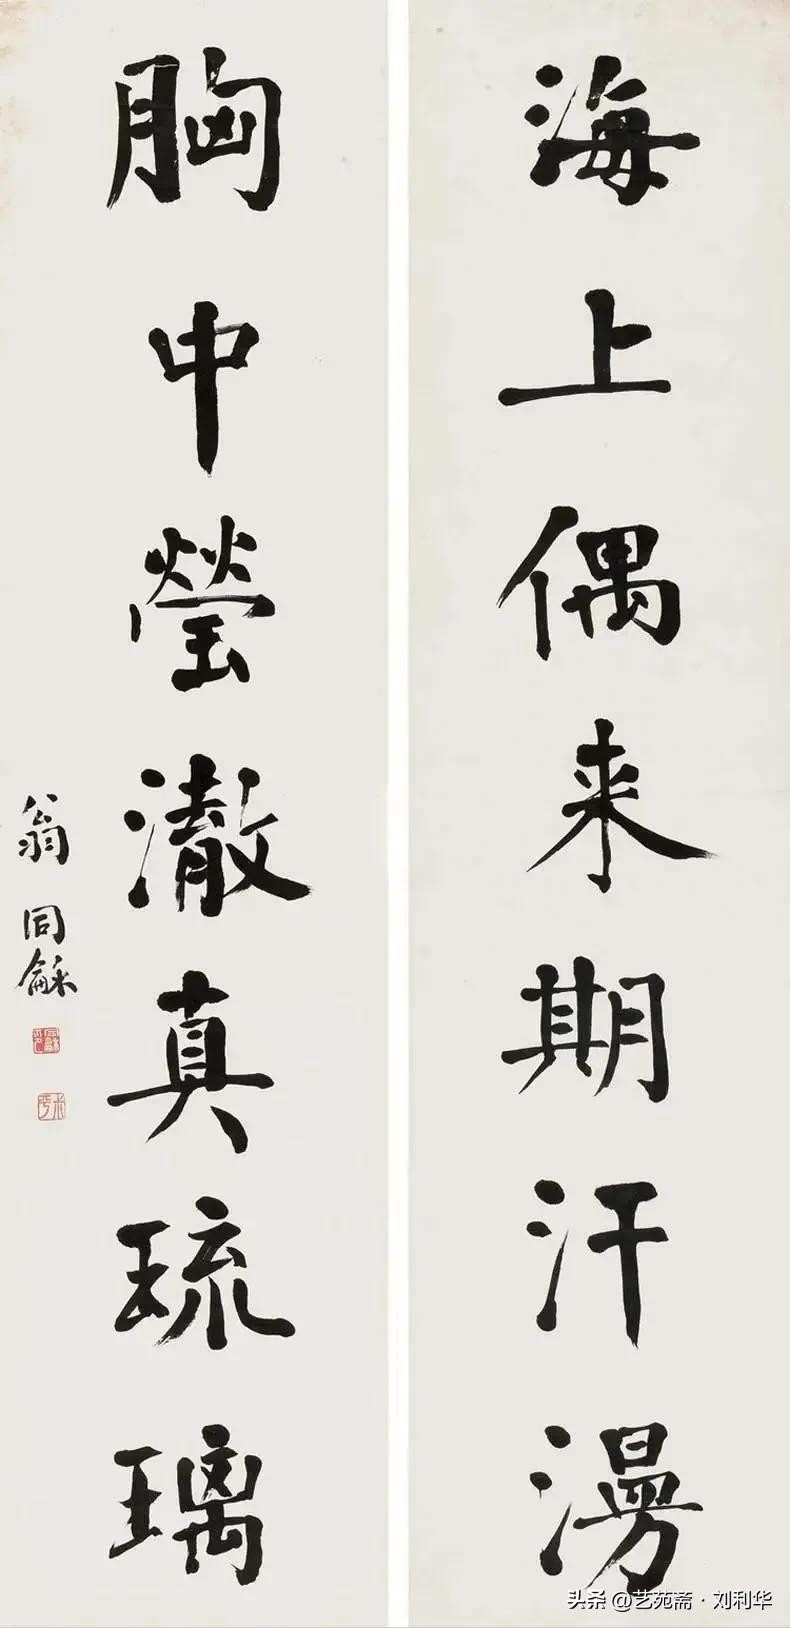 海上偶来期汗漫
胸中瑩澈真琉璃
翁同龢
头条 @艺苑斋·刘利华